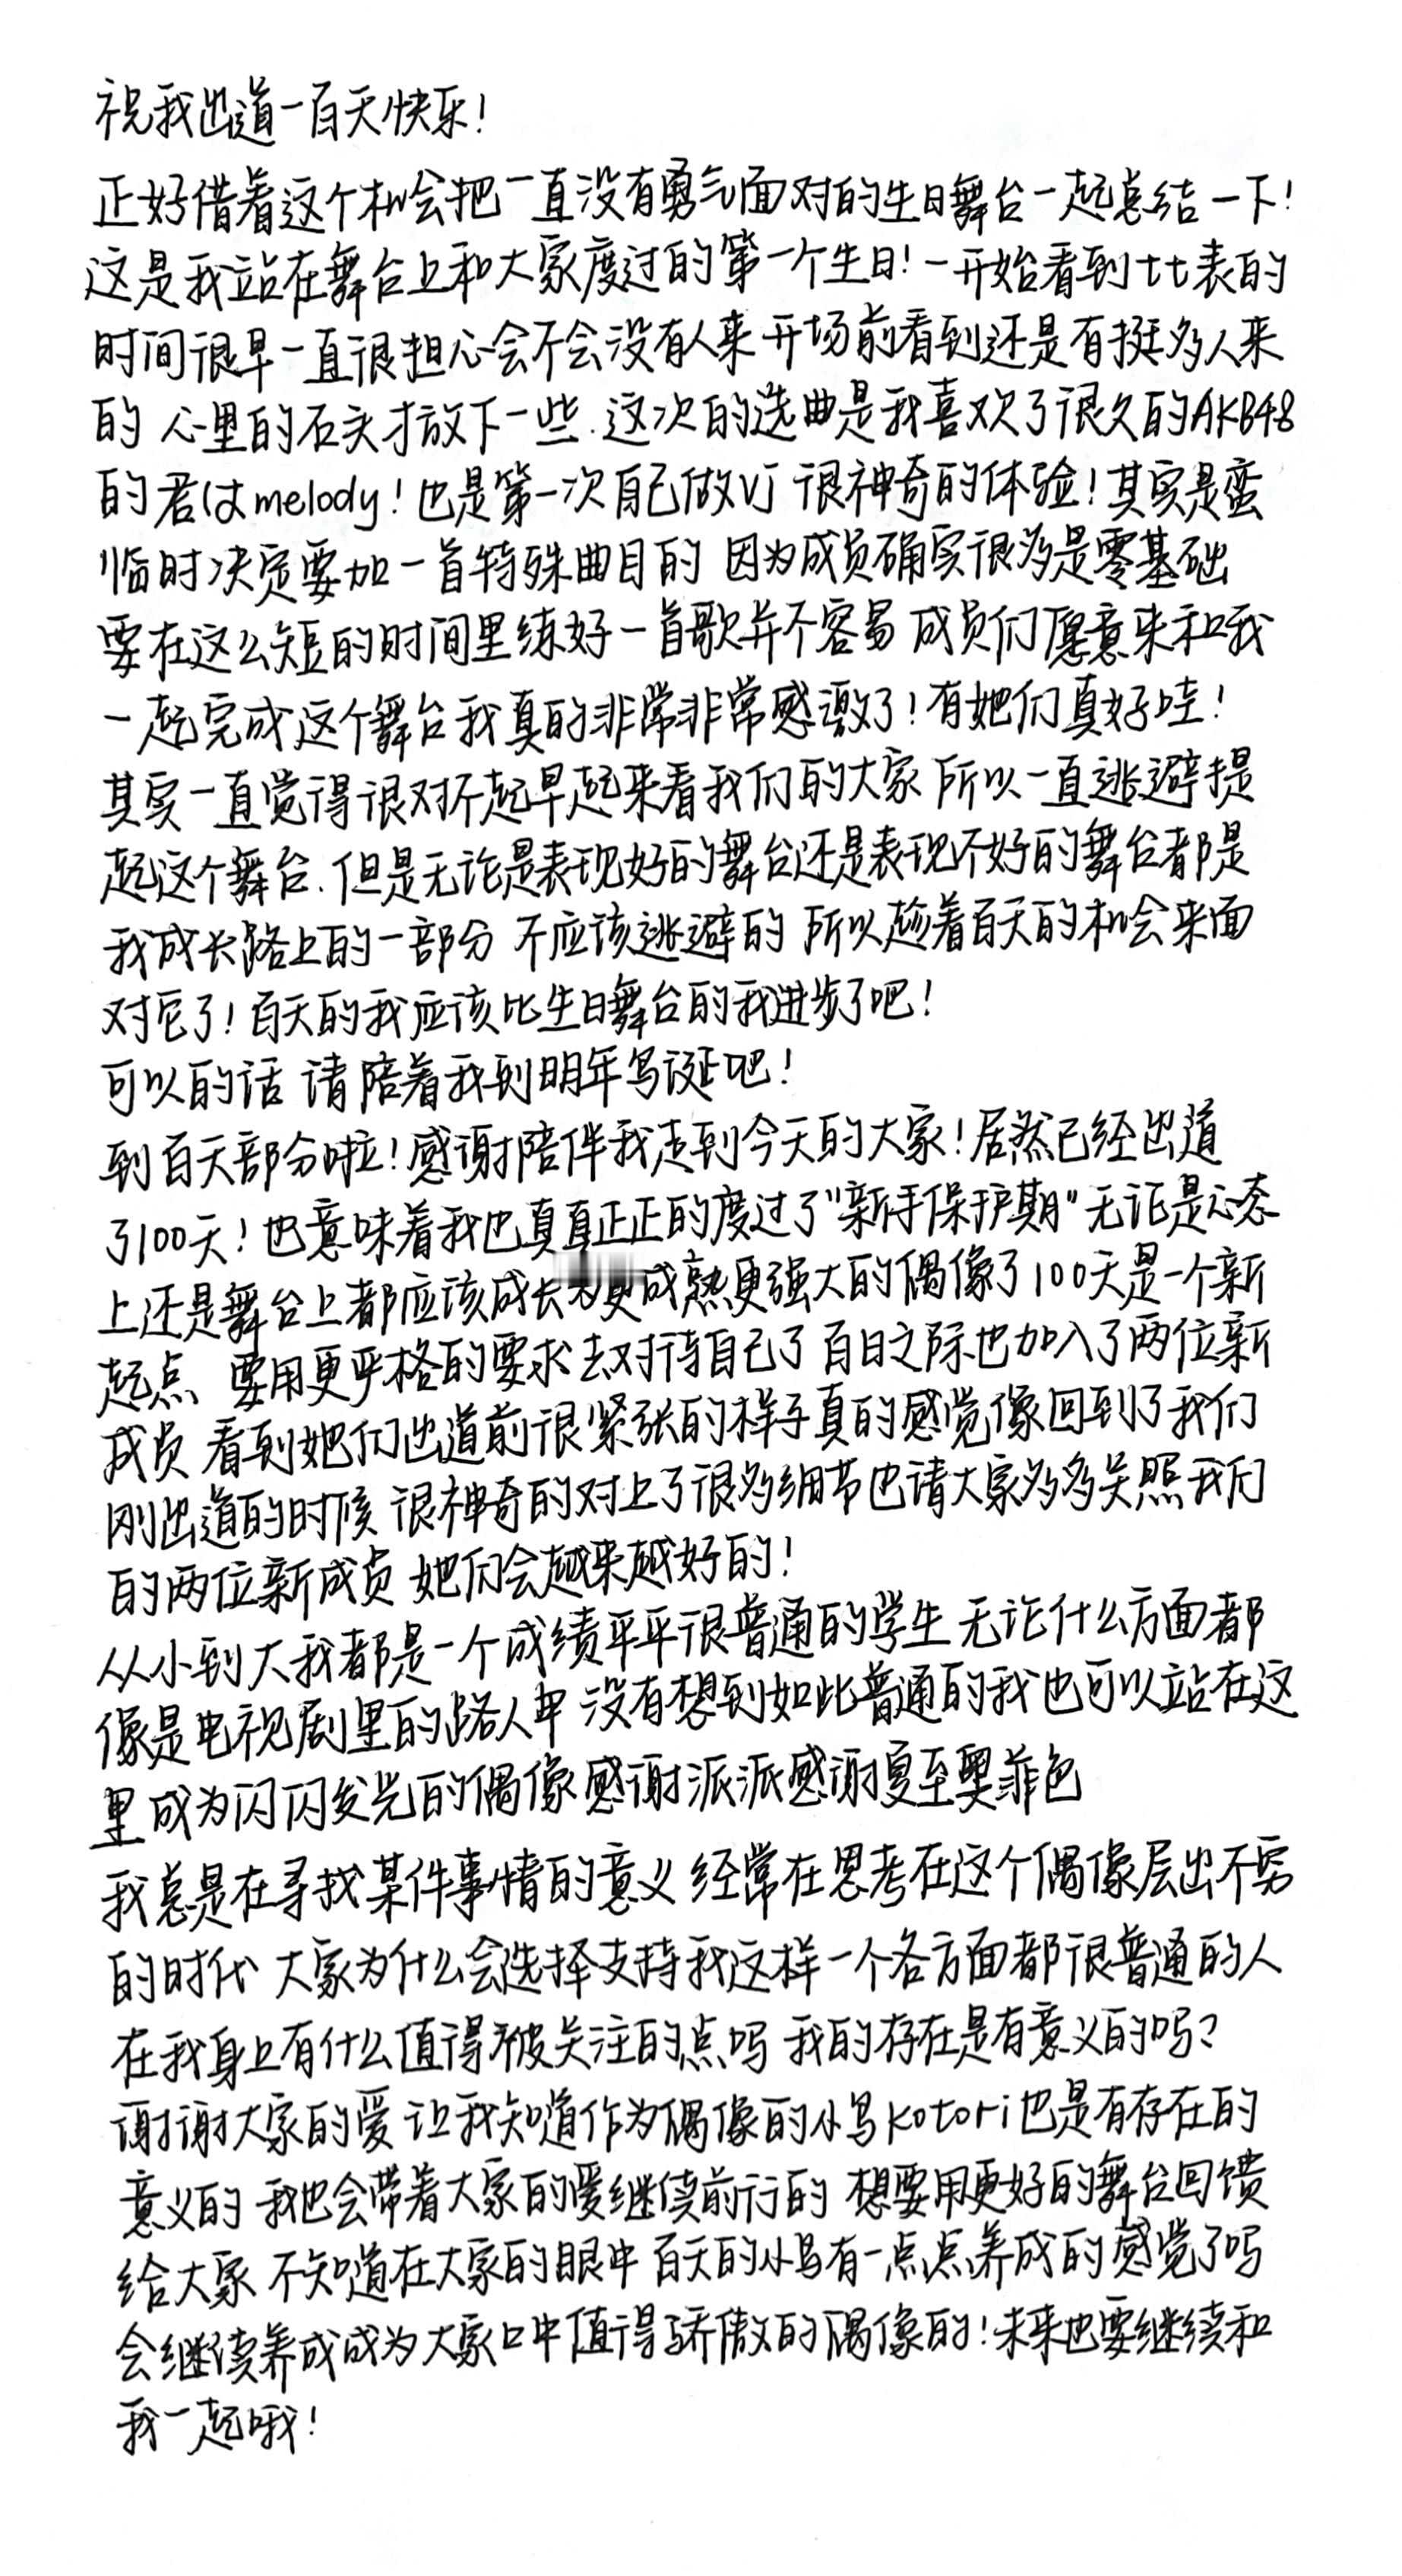 祝我出道一百天快乐!
正好借着这个机会把一直没有勇气面对的生日舞台一起总结一下!
这是我站在舞台上和大家度过的第一个生日!一开始看到tt表的
时间很早一直很担心会不会没有人来 开场前看到还是有挺多人来
的 心里的石头才放下一些.这次的选曲是我喜欢了很久的AKB48
的君はmelody!也是第一次自己做VJ 很神奇的体验!其实是蛮
临时决定要加一首特殊曲目的 因为成员确实很多是零基础
要在这么短的时间里练好一首歌并不容易 成员们愿意来和我
一起完成这个舞台我真的非常非常感激了!有她们真好哇!
其实一直觉得很对不起早起来看我们的大家 所以一直逃避提
起这个舞台.但是无论是表现好的舞台还是表现不好的舞台都是
我成长路上的一部分 不应该逃避的 所以趁着百天的机会来面
对它了!百天的我应该比生日舞台的我进步了吧!
可以的话 请陪着我到明年鸟诞吧!
到百天部分啦!感谢陪伴我走到今天的大家!居然已经出道
了100天!也意味着我也真真正正的度过了"新手保护期"无论是心态
上还是舞台上都应该成长为更成熟更强大的偶像了 100天是一个新
起点 要用更严格的要求去对待自己了 百日之际也加入了两位新
成员 看到她们出道前很紧张的样子真的感觉像回到了我们
刚出道的时候 很神奇的对上了很多细节也请大家多多关照我们
的两位新成员 她们会越来越好的!
从小到大我都是一个成绩平平很普通的学生 无论什么方面都
像是电视剧里的路人甲 没有想到如此普通的我也可以站在这
里成为闪闪发光的偶像 感谢派派感谢夏至奥菲色
我总是在寻找某件事情的意义 经常在思考在这个偶像层出不穷
的时代 大家为什么会选择支持我这样一个各方面都很普通的人
在我身上有什么值得被关注的点吗 我的存在是有意义的吗?
谢谢大家的爱 让我知道作为偶像的小鸟kotori也是有存在的
意义的 我也会带着大家的爱继续前行的 想要用更好的舞台回馈
给大家 不知道在大家的眼中 百天的小鸟有一点点养成的感觉了吗
会继续养成成为大家口中值得骄傲的偶像的!未来也要继续和
我一起哦!